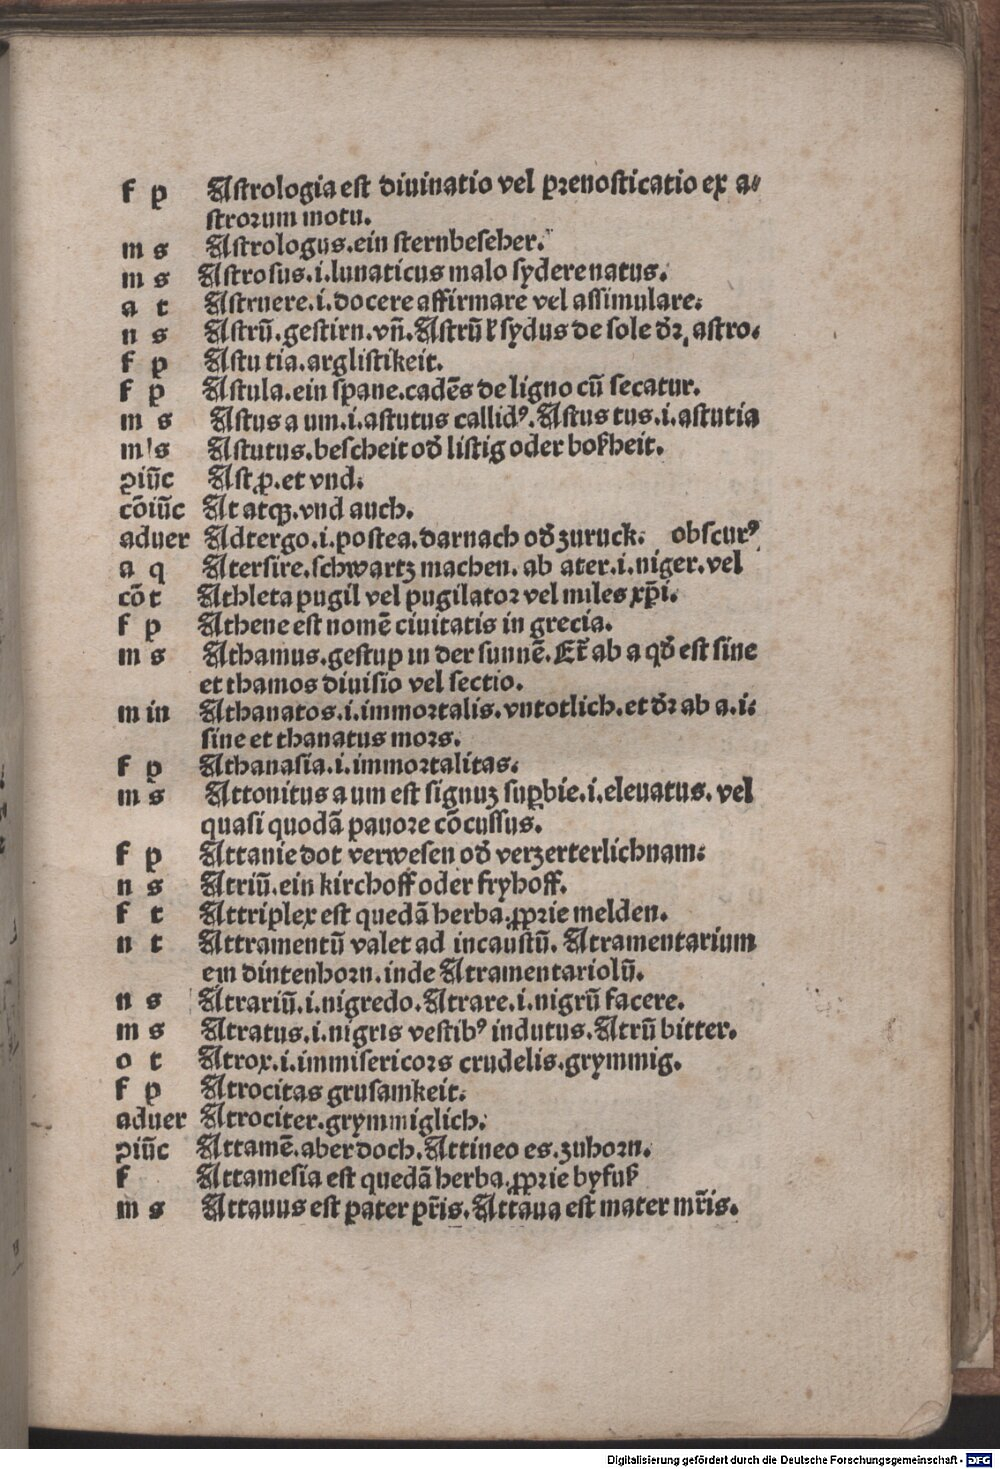 f p Astrologia est diuinatio vel prenosticatio ex a⸗
strorum motu.
m s Astrologus.ein sternbeseher.
m s Astrosus.i.lunaticus malo syderenatus.
a t Astruere.i.docere affirmare vel assimulare.
n s Astrū.gestirn.vñ.Astrū ł sydus de sole dr̄,astro.
f p Astutia.arglistikeit.
f p Astula.ein spane.cadēs de ligno cū secatur.
m s Astus a um.i.astutus callidꝰ.Astus tus.i.astutia
m s Astutus.bescheit od̄ listig oder boßheit.
ꝯiūc Ast,p̱.et vnd.
cōiūc At atqꝫ.vnd auch.
aduer Adtergo.i.postea.darnach od̄ zuruck. obscurꝰ
a q Atersire.schwartz machen.ab ater.i.niger.vel
cō t Athleta pugil vel pugilator vel miles xp̄i.
f p Athene est nomē ciuitatis in grecia.
m s Athamus.gestup in der sunnē.Et̄ ab a qd̄ est sine
et thamos diuisio vel sectio.
m in Athanatos.i.immortalis.vntotlich.et dr̄ ab a.i.
sine et thanatus mors.
f p Athanasia.i.immortalitas.
m s Attonitus a um est signuꝫ suꝑbie.i.eleuatus.vel
quasi quodā pauore cōcussus.
f p Attanie dot verwesen od̄ verzerterlichnam.
n s Atriū.ein kirchoff oder fryhoff.
f t Attriplex est quedā herba.ꝓprie melden.
n t Attramentū valet ad incaustū.Atramentarium
ein dintenhorn.inde Atramentariolū.
n s Atrariū.i.nigredo.Atrare.i.nigrū facere.
m s Atratus.i.nigris vestibꝰ indutus.Atrū bitter.
o t Atrox.i.immisericors crudelis.grymmig.
f p Atrocitas grusamkeit.
aduer Atrociter.grymmiglich.
ꝯiūc Attamē.aber doch.Attineo es.zuhorn.
f Attamesia est quedā herba.ꝓprie byfuß
m s Attauus est pater pr̄is.Attaua est mater mr̄is.
Digitalisierung gefördert durch die Deutsche Forschungsgemeinschaft - DFG